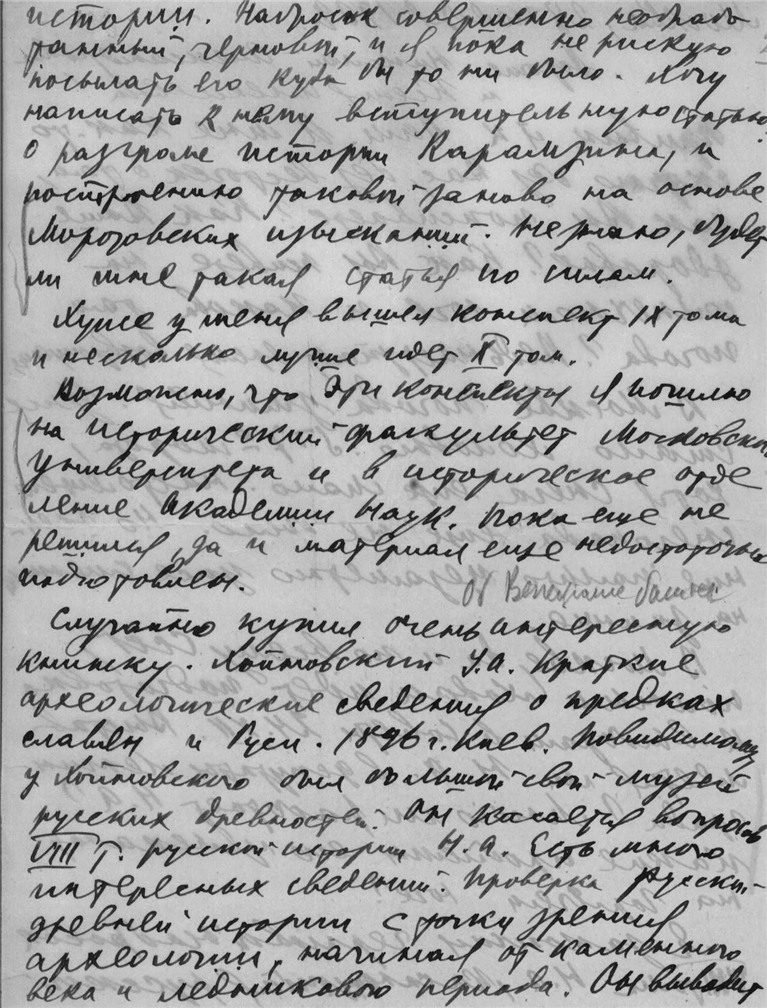 истории. Набросок совершенно необрабо
танный, черновой, и я пока не рискую
посылать его куда бы то ни было. Хочу
написать к нему вступительную статью
о разгроме истории Карамзина, и
построению таковой заново на основе
Морозовских изысканий. Не знаю, будет
ли мне такая статья по силам.
Хуже у меня вышел конспект IX тома
и несколько лучше идет X том.
Возможно, что эти конспекты я пошлю
на исторический факультет Московско
Университета и в историческое отде
ление Академии Наук. Пока еще не
решился, да и материал еще недостаточно
подготовлен.
Об
Случайно купил очень интересную
книжку. Хойновский И.А. Краткие
археологические сведения о предках
славян и Руси. 1896 г. Киев. Повидимому
у Хойновского был большой свой музей
русских древностей. Он касается вопросов
VIII т. русской истории Н.А. Есть много
интересных сведений. Проверка русской
древней истории с точки зрения
археологии, начиная от каменного
века и ледникового периода. Он выводит